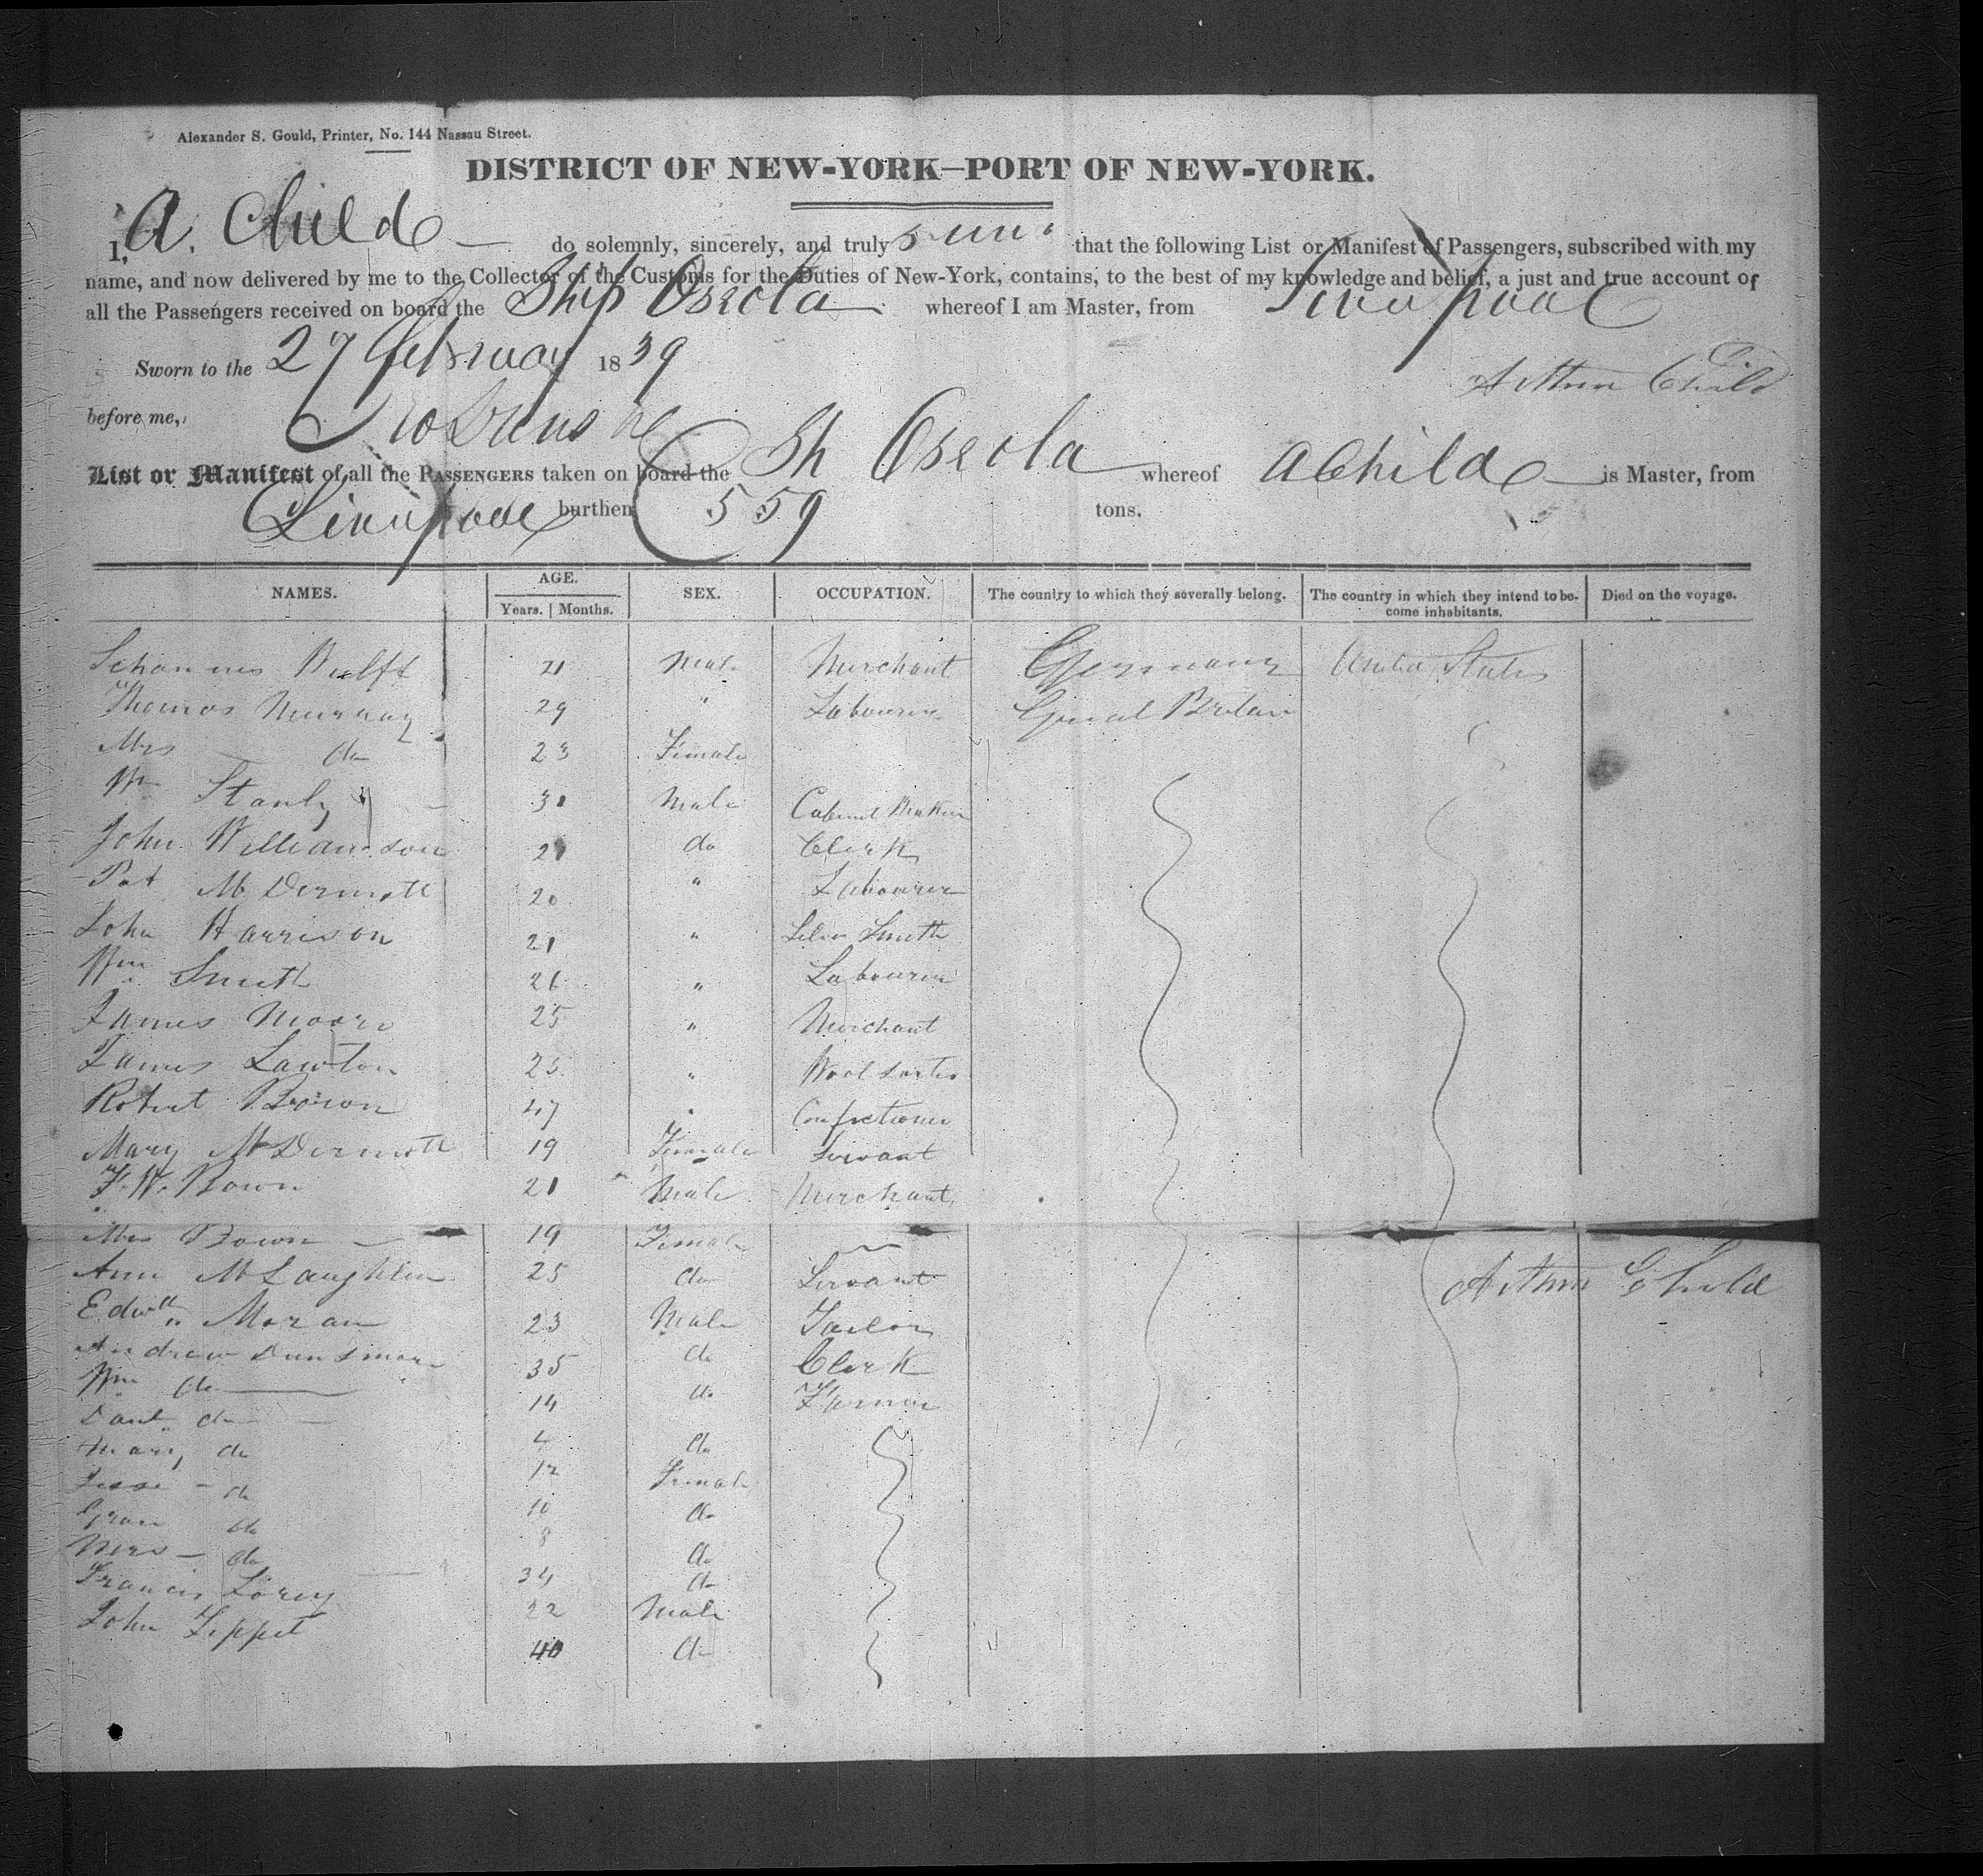 Alexander S. Gould, Printer, No. 144 Nassau Street.
DISTRICT OF NEW-YORK—PORT OF NEW-YORK.
I, A. Child do solemnly, sincerely, and truly that the following List or Manifest of Passengers, subscribed with my
name, and now delivered by me to the Collector of the Customs for the Duties of New-York, contains, to the best of my knowledge and belief, a just and true account of
all the Passengers received on board the Ship Oseola whereof I am Master, from Liverpool
Sworn to the 27 February 1839
Arthur Child
before me,
List or Manifest of all the PASSENGERS taken on board the Sh Oseola whereof A Child is Master, from
Liverpool burthen 559 tons.
NAMES. AGE. Years. Months. SEX. OCCUPATION. The country to which they severally belong. The country in which they intend to become inhabitants. Died on the voyage.
Wulff 21 Male Merchant Germany United States
Thomas Murray 29 " Labourer Great Britain
Mrs do 23 Female
Wm Stanly 30 Male Cabinet Maker
John Williamson 21 do Clerk
Pat McDermott 20 " Labourer
John Harrison 21 " Silver Smith
Wm Smith 26 " Labourer
James Moore 25 " Merchant
James Lawton 25 " Wool Sorter
Robert Brown 47 " Confectioner
Mary McDermott 19 Female Servant
F. W. Bown 21 Male Merchant
Mrs Bown 19 Female
Ann McLaughlin 25 do Servant
Arthur Child
Edwd Moran 23 Male Tailor
Andrew Dunsmore 35 do Clerk
Wm do 14 do Farmer
Danl do 4 do
Mary do 12 Female
Jesse do 10 do
Grace do 8 do
Mrs do 34 do
Francis Lorey 22 Male
John Tippet 40 do